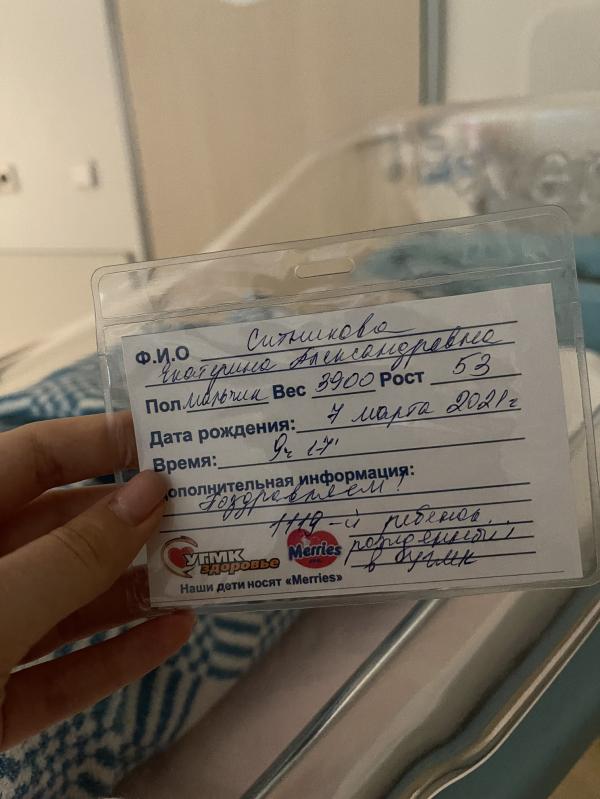 Ф.И.О Ситникова
Екатерина Александровна
Пол мальчик Вес 3900 Рост 53
Дата рождения: 7 марта 2021г
Время: 9ч 17'
Дополнительная информация:
Поздравляем!
1119-й ребенок
рожденный
в УГМК
УГМК
здоровье
Merries
Наши дети носят «Merries»